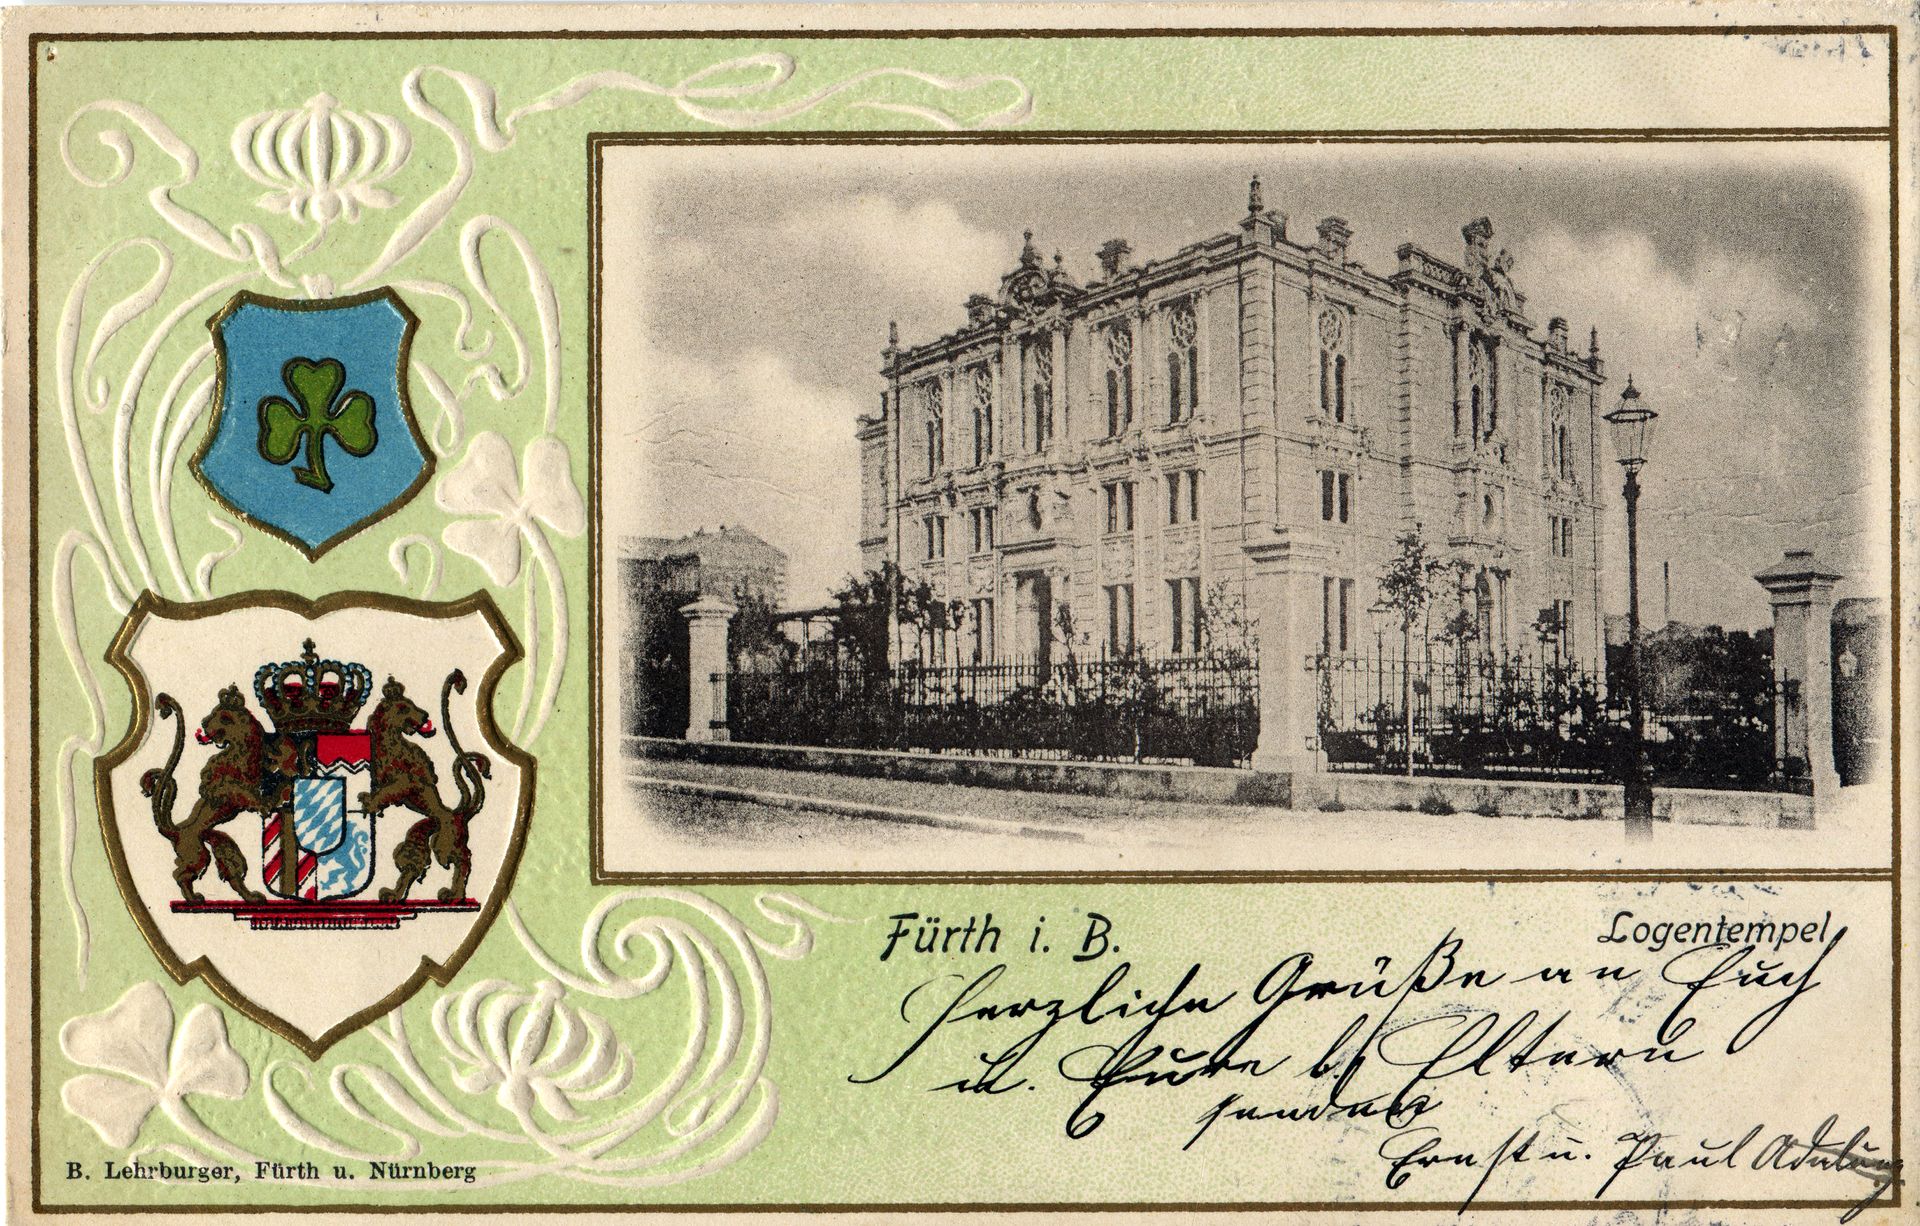 Fürth i. B.
Logentempel
Herzliche Grüße an Euch
u. Eure l. Eltern
senden
Ernst u. Paul Adelung
B. Lehrburger, Fürth u. Nürnberg